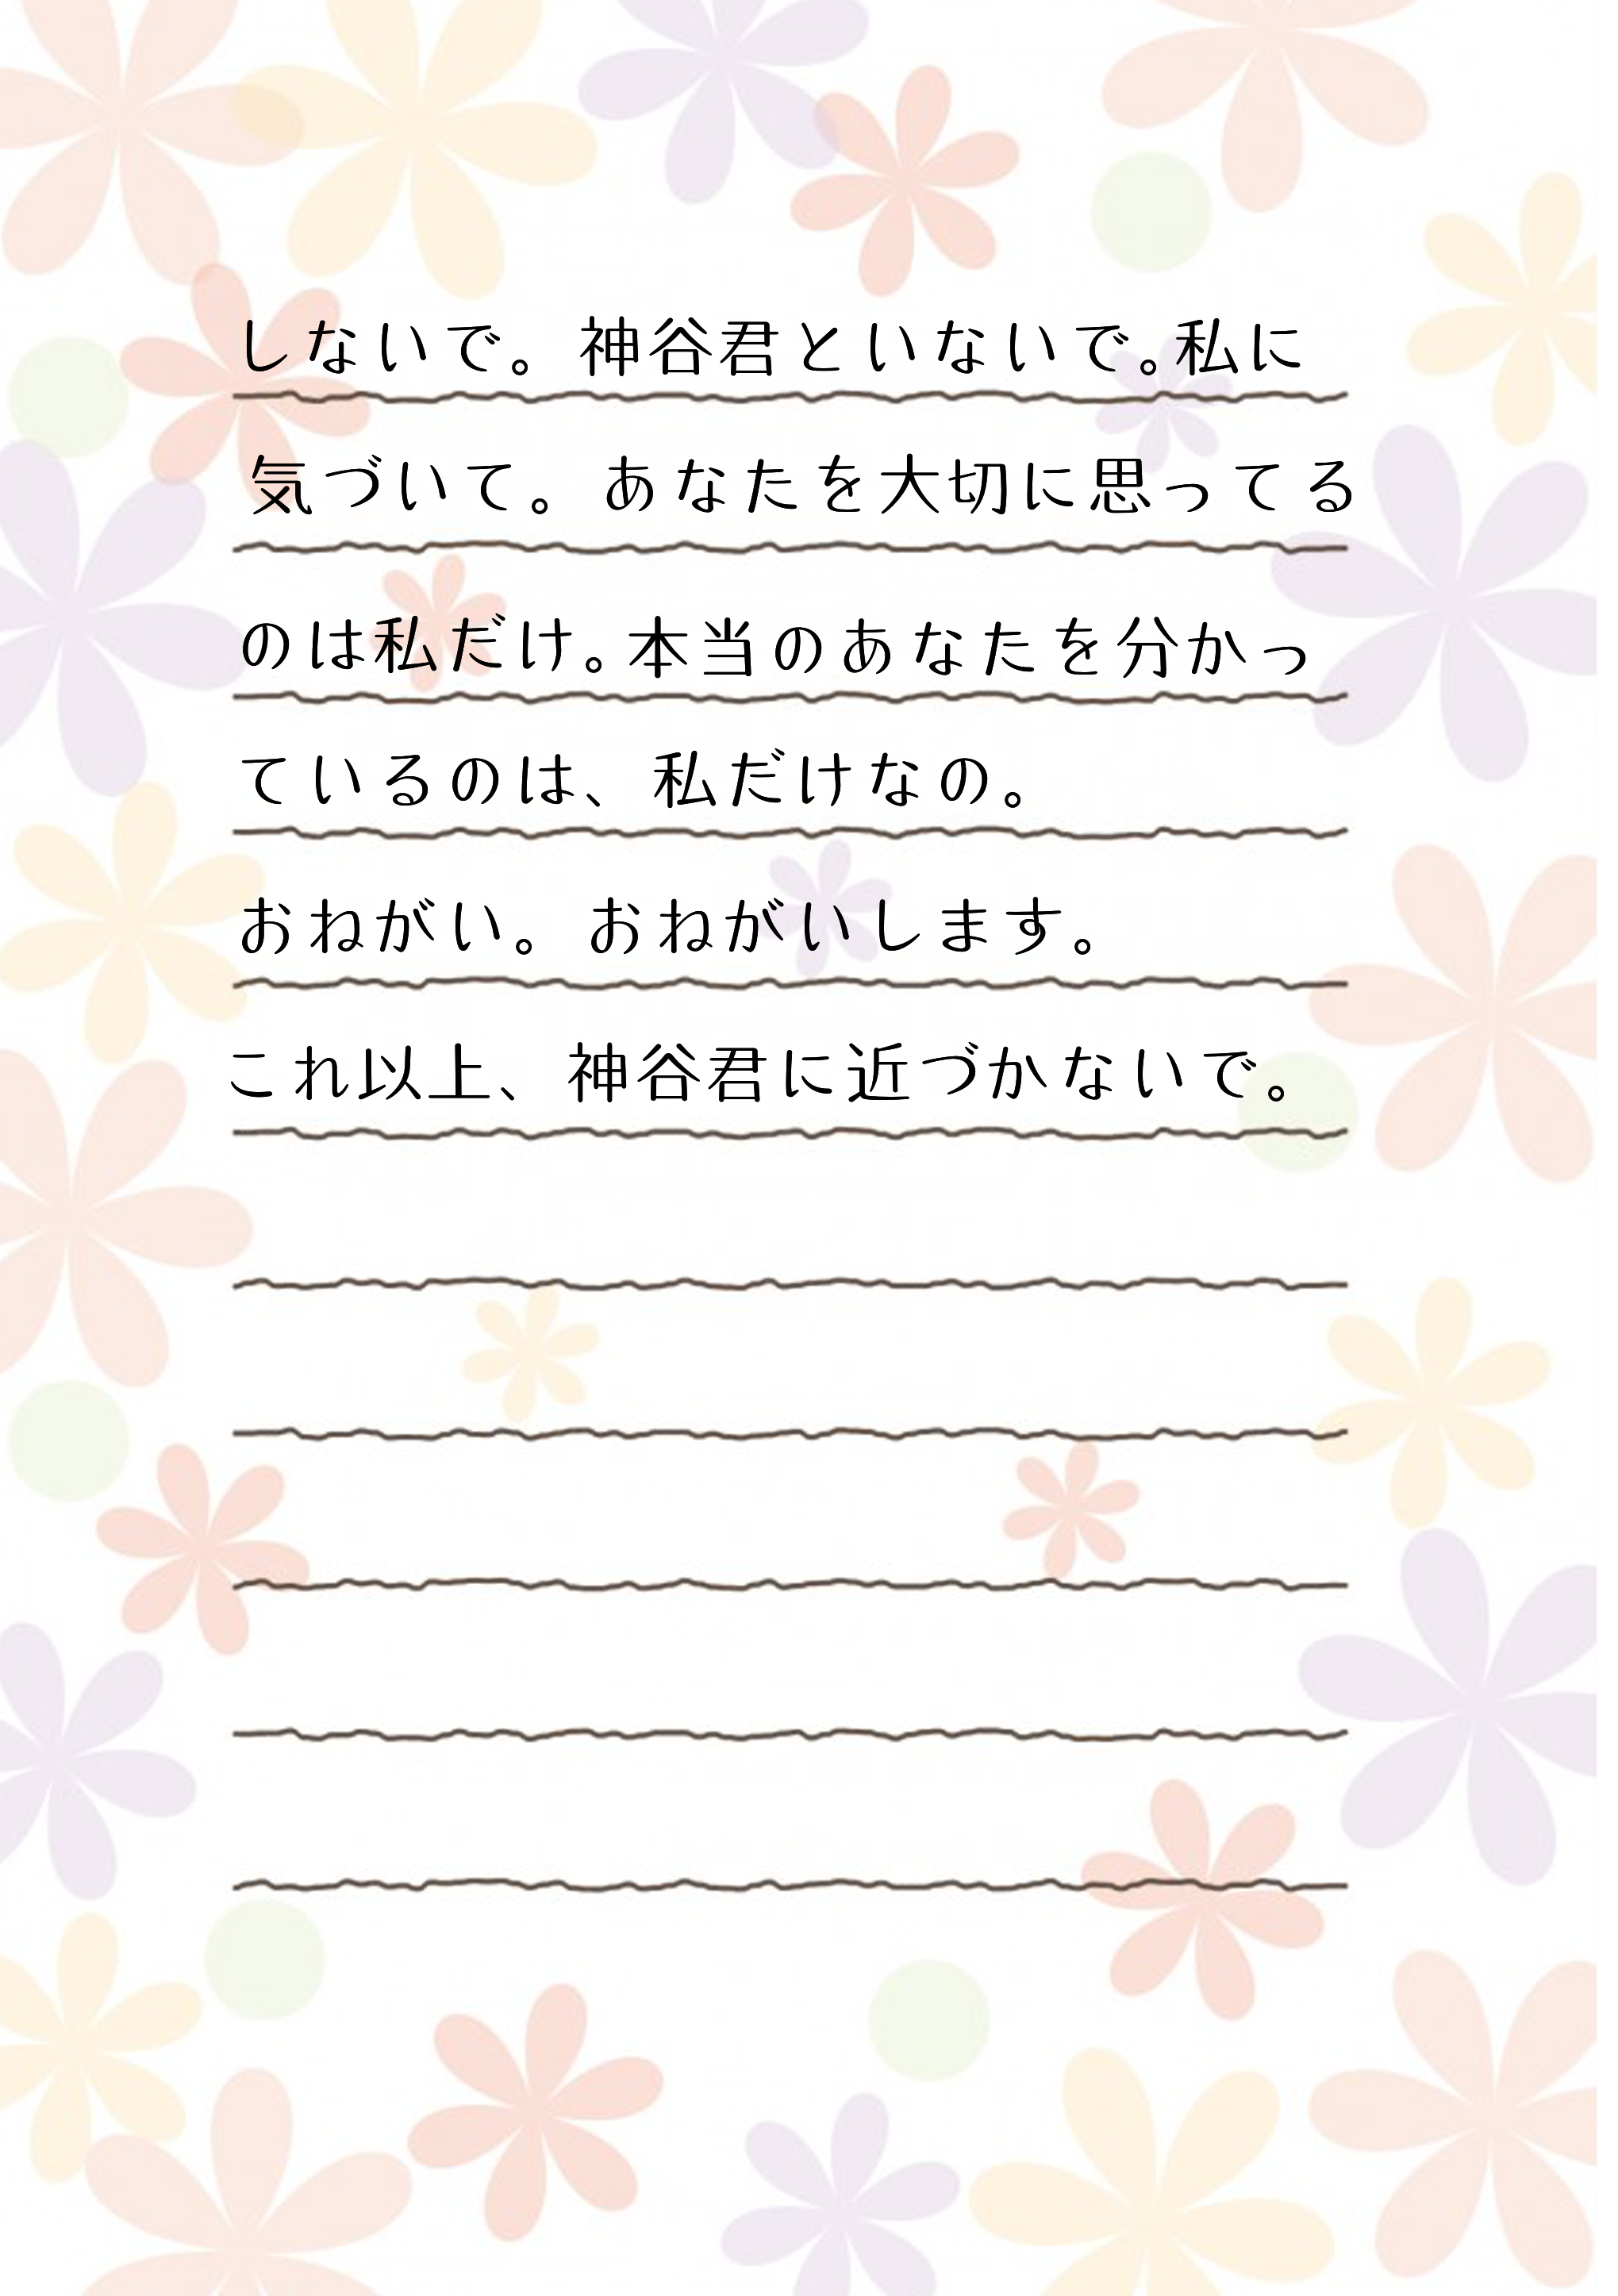 しないで。神谷君といないで。私に
気づいて。あなたを大切に思ってる
のは私だけ。本当のあなたを分かっ
ているのは、私だけなの。
おねがい。おねがいします。
これ以上、神谷君に近づかないで。